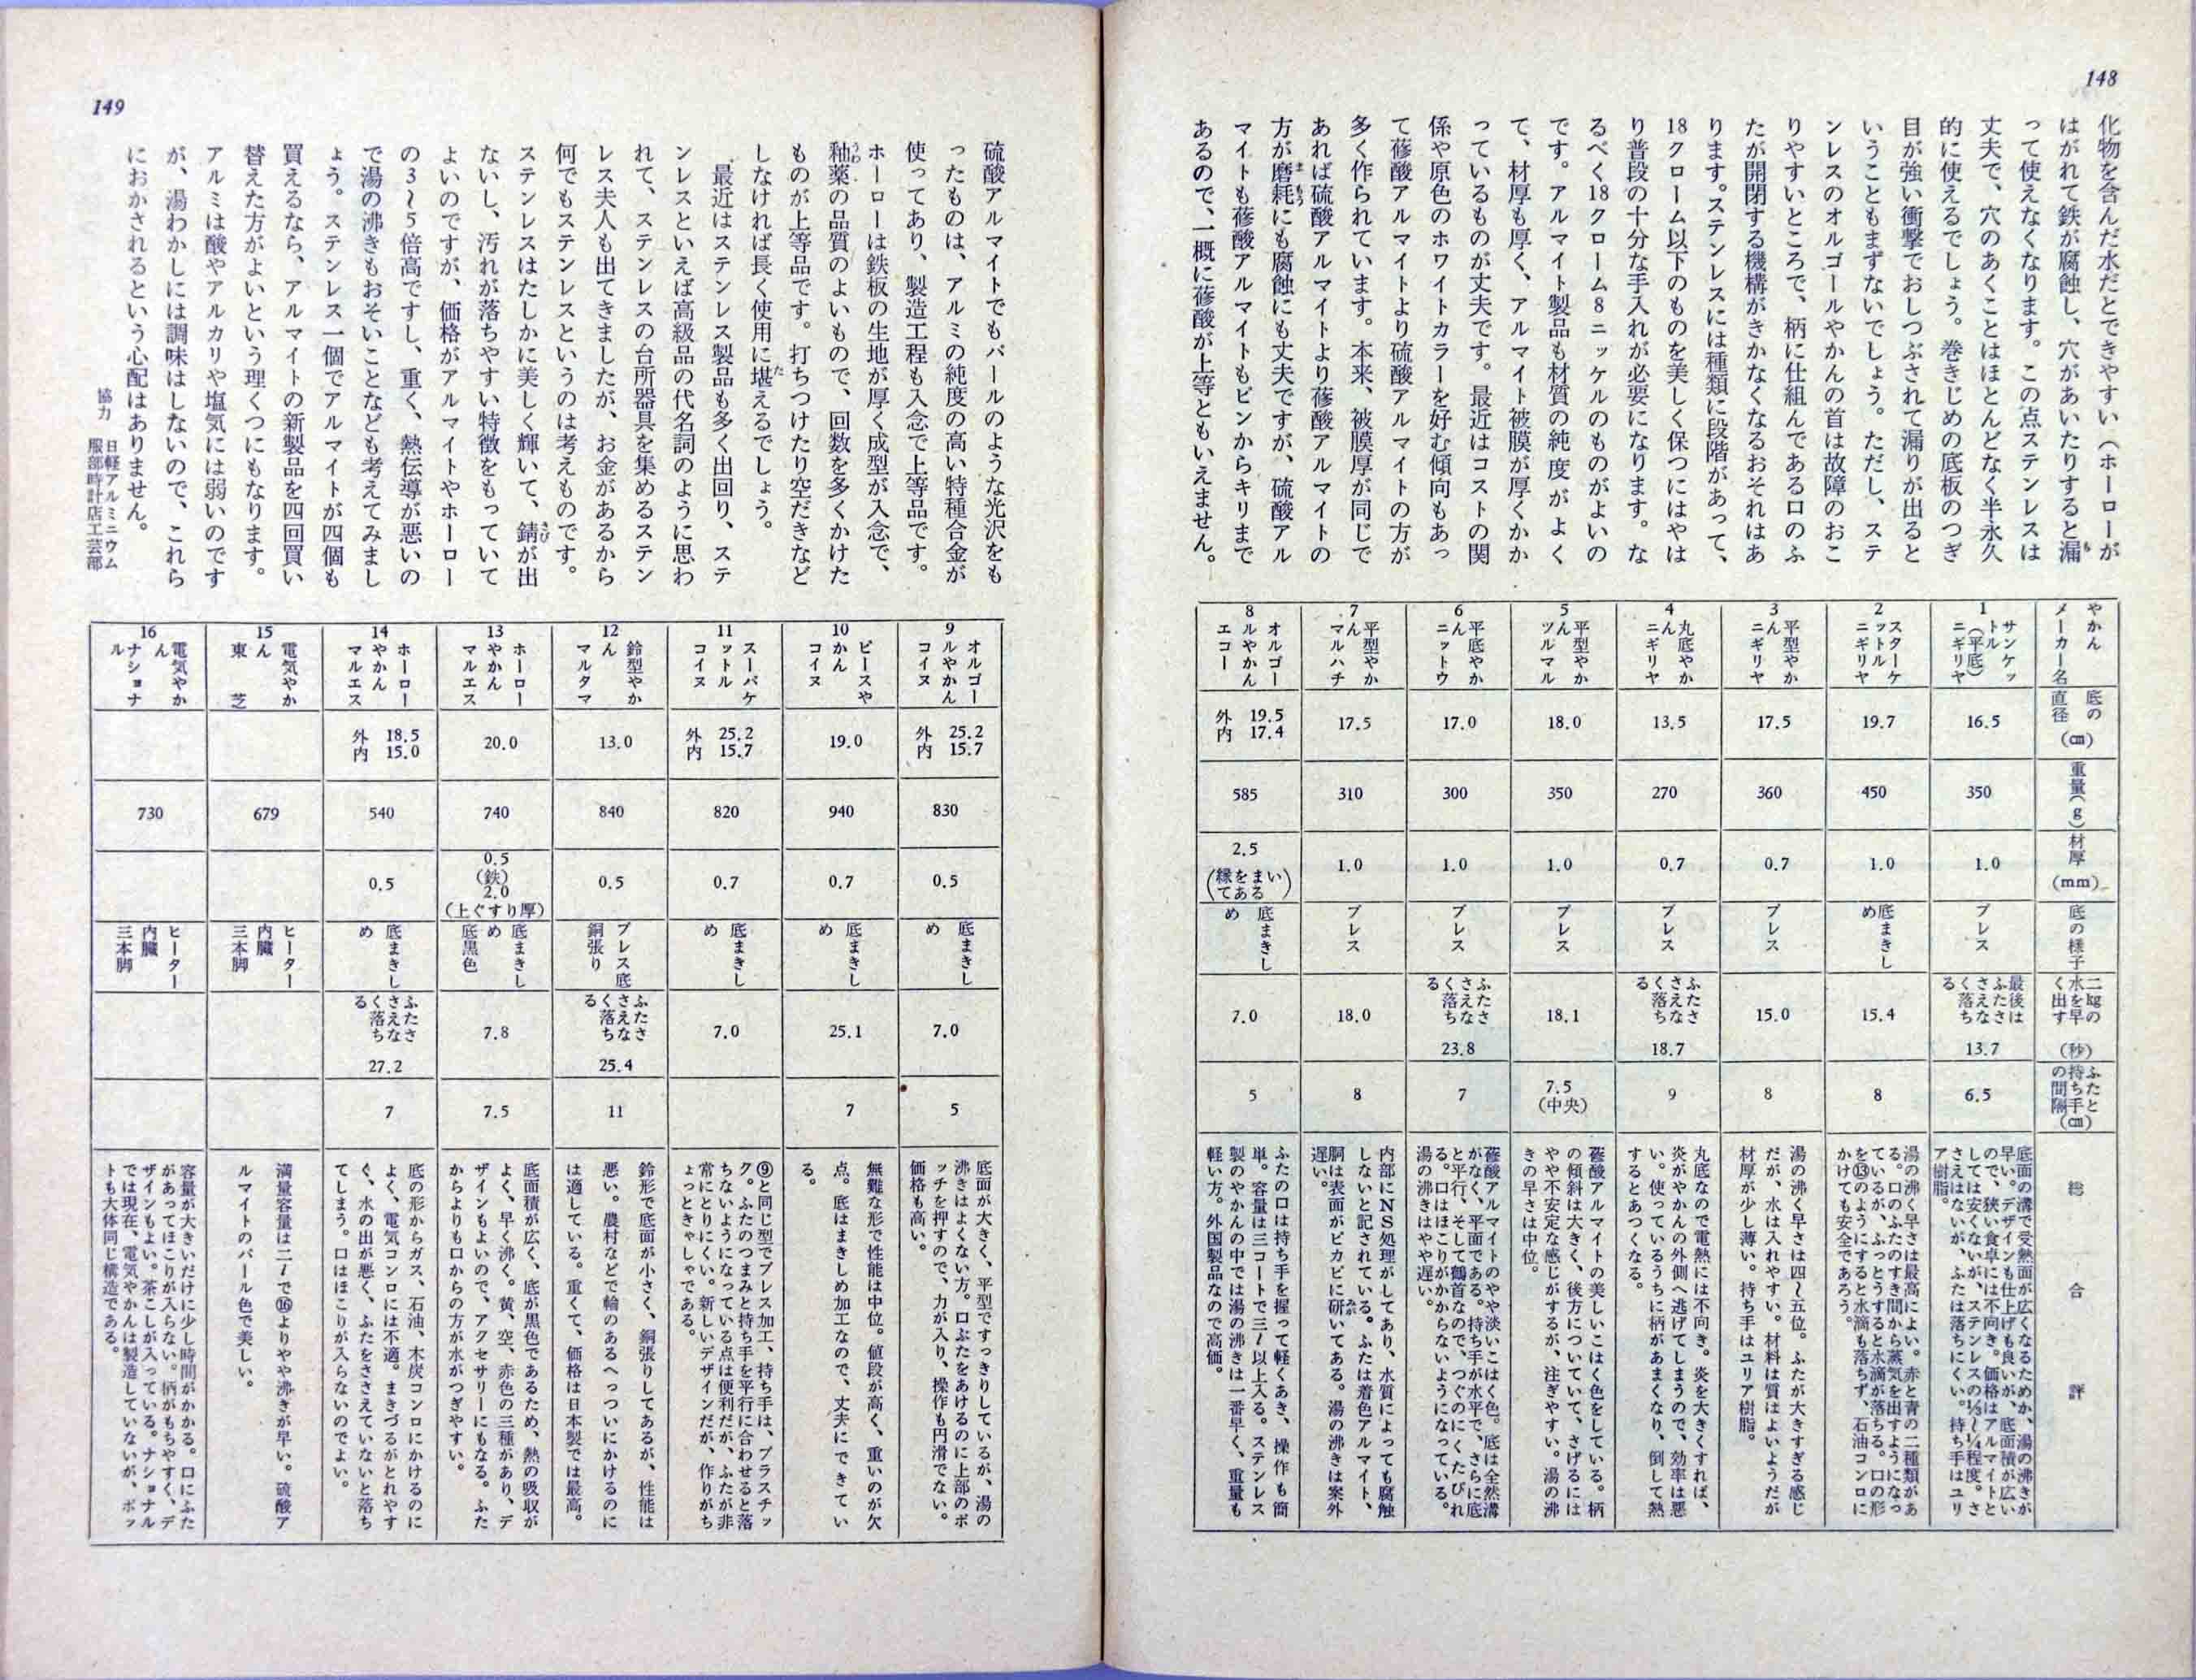 148
化物を含んだ水だとできやすい（ホーローが
はがれて鉄が腐蝕し、穴があいたりすると漏
って使えなくなります。この点ステンレスは
丈夫で、穴のあくことはほとんどなく半永久
的に使えるでしょう。巻きじめの底板のつぎ
目が強い衝撃でおしつぶされて漏りが出ると
いうこともまずないでしょう。ただし、ステ
ンレスのオルゴールやかんの首は故障のおこ
りやすいところで、柄に仕組んである口のふ
たが開閉する機構がきかなくなるおそれはあ
ります。ステンレスには種類に段階があって、
18クローム以下のものを美しく保つにはやは
り普段の十分な手入れが必要になります。な
るべく18クローム8ニッケルのものがよいの
です。アルマイト製品も材質の純度がよく
て、材厚も厚く、アルマイト被膜が厚くかか
っているものが丈夫です。最近はコストの関
係や原色のホワイトカラーを好む傾向もあっ
て蓚酸アルマイトより硫酸アルマイトの方が
多く作られています。本来、被膜厚が同じで
あれば硫酸アルマイトより蓚酸アルマイトの
方が磨耗にも腐蝕にも丈夫ですが、硫酸アル
マイトも蓚酸アルマイトもピンからキリまで
あるので、一概に蓚酸が上等ともいえません。
やかん
メーカー名
底の
直径
(㎝)
重量(g)
材厚
(mm)
底の様子
二kgの
水を早
く出す
(秒)
ふたと
持ち手
の間隔
(㎝)
総合評
1
サンケッ
トル
（平底）
ニギリヤ
16.5
350
1.0
プレス
最後は
ふたさ
さえな
く落ち
る
13.7
6.5
底面の溝で受熱面が広くなるためか、湯の沸きが
早い。デザインも仕上げも良いが、底面積が広い
ので、狭い食卓には不向き。価格はアルマイトと
しては安くないが、ステンレスの⅓〜¼程度。さ
さえはないが、ふたは落ちにくい。持ち手はユリ
ア樹脂。
2
スターケ
ットル
ニギリヤ
19.7
450
1.0
底まきし
め
15.4
8
湯の沸く早さは最高によい。赤と青の二種類があ
る。口のふたのすき間から蒸気を出すようになっ
ているが、ふっとうすると水滴が落ちる。口の形
を⑬のようにすると水滴も落ちず、石油コンロに
かけても安全であろう。
3
平型やか
ん
ニギリヤ
17.5
360
0.7
プレス
15.0
8
湯の沸く早さは四〜五位。ふたが大きすぎる感じ
だが、水は入れやすい。材料は質はよいようだが
材厚が少し薄い。持ち手はユリア樹脂。
4
丸底やか
ん
ニギリヤ
13.5
270
0.7
プレス
ふたさ
さえな
く落ち
る
18.7
9
丸底なので電熱には不向き。炎を大きくすれば、
炎がやかんの外側へ逃げてしまうので、効率は悪
い。使っているうちに柄があまくなり、倒して熱
するとあつくなる。
5
平型やか
ん
ツルマル
18.0
350
1.0
プレス
18.1
7.5
(中央)
蓚酸アルマイトの美しいこはく色をしている。柄
の傾斜は大きく、後方についていて、さげるには
やや不安定な感じがするが、注ぎやすい。湯の沸
きの早さは中位。
6
平底やか
ん
ニットウ
17.0
300
1.0
プレス
ふたさ
さえな
く落ち
る
23.8
7
蓚酸アルマイトのやや淡いこはく色。底は全然溝
がなく、平面である。持ち手が水平で、さらに底
と平行、そして鶴首なので、つぐのにくたびれ
る。口はほこりがかからないようになっている。
湯の沸きはやや遅い。
7
平型やか
ん
マルハチ
17.5
310
1.0
プレス
18.0
8
内部にNS処理がしてあり、水質によっても腐触
しないと記されている。ふたは着色アルマイト、
胴は表面がピカピに研いてある。湯の沸きは案外
遅い。
8
オルゴー
ルやかん
エコー
外 19.5
内 17.4
585
2.5
(縁をまい
てある)
底まきし
め
7.0
5
ふたの口は持ち手を握って軽くあき、操作も簡
単。容量は三コートで三ℓ以上入る。ステンレス
製のやかんの中では湯の沸きは一番早く、重量も
軽い方。外国製品なので高価。
149
硫酸アルマイトでもパールのような光沢をも
ったものは、アルミの純度の高い特種合金が
使ってあり、製造工程も入念で上等品です。
ホーローは鉄板の生地が厚く成型が入念で、
釉薬の品質のよいもので、回数を多くかけた
ものが上等品です。打ちつけたり空だきなど
しなければ長く使用に堪えるでしょう。
最近はステンレス製品も多く出回り、ステ
ンレスといえば高級品の代名詞のように思わ
れて、ステンレスの台所器具を集めるステン
レス夫人も出てきましたが、お金があるから
何でもステンレスというのは考えものです。
ステンレスはたしかに美しく輝いて、錆が出
ないし、汚れが落ちやすい特徴をもっていて
よいのですが、価格がアルマイトやホーロー
の3〜5倍高ですし、重く、熱伝導が悪いの
で湯の沸きもおそいことなども考えてみまし
ょう。ステンレス一個でアルマイトが四個も
買えるなら、アルマイトの新製品を四回買い
替えた方がよいという理くつにもなります。
アルミは酸やアルカリや塩気には弱いのです
が、湯わかしには調味はしないので、これら
におかされるという心配はありません。
協力 日軽アルミニウム
服部時計店工芸部
9
オルゴー
ルやかん
コイヌ
外 25.2
内 15.7
830
0.5
底まきし
め
7.0
5
底面が大きく、平型ですっきりしているが、湯の
沸きはよくない方。口ぶたをあけるのに上部のボ
ッチを押すので、力が入り、操作も円滑でない。
価格も高い。
10
ピースや
かん
コイヌ
19.0
940
0.7
底まきし
め
25.1
7
無難な形で性能は中位。値段が高く、重いのが欠
点。底はまきしめ加工なので、丈夫にできてい
る。
11
スーパケ
ットル
コイヌ
外 25.2
内 15.7
820
0.7
底まきし
め
7.0
⑨と同じ型でプレス加工、持ち手は、プラスチッ
ク。ふたのつまみと持ち手を平行に合わせると落
ちないようになっている点は便利だが、ふたが非
常にとりにくい。新しいデザインだが、作りがち
ょっときゃしゃである。
12
鈴型やか
ん
マルタマ
13.0
840
0.5
プレス底
銅張り
ふたさ
さえな
く落ち
る
25.4
11
鈴形で底面が小さく、銅張りしてあるが、性能は
悪い。農村などで輪のあるへっついにかけるのに
は適している。重くて、価格は日本製では最高。
13
ホーロー
やかん
マルエス
20.0
740
0.5
(鉄)
2.0
(上ぐすり厚)
底まきし
め
底黒色
7.8
7.5
底面積が広く、底が黒色であるため、熱の吸収が
よく、早く沸く。黄、空、赤色の三種があり、デ
ザインもよいので、アクセサリーにもなる。ふた
からよりも口からの方が水がつぎやすい。
14
ホーロー
やかん
マルエス
外 18.5
内 15.0
540
0.5
底まきし
め
ふたさ
さえな
く落ち
る
27.2
7
底の形からガス、石油、木炭コンロにかけるのに
よく、電気コンロには不適。まきづるがとれやす
く、水の出が悪く、ふたをささえていないと落ち
てしまう。口はほこりが入らないのでよい。
15
電気やか
ん
東芝
679
ヒーター
内臓
三本脚
満量容量は二ℓで⑯よりやや沸きが早い。硫酸ア
ルマイトのパール色で美しい。
16
電気やか
ん
ナショナ
ル
730
ヒーター
内臓
三本脚
容量が大きいだけに少し時間がかかる。口にふた
があってほこりが入らない。柄がもちやすく、デ
ザインもよい。茶こしが入っている。ナショナル
では現在、電気やかんは製造していないが、ポッ
トも大体同じ構造である。